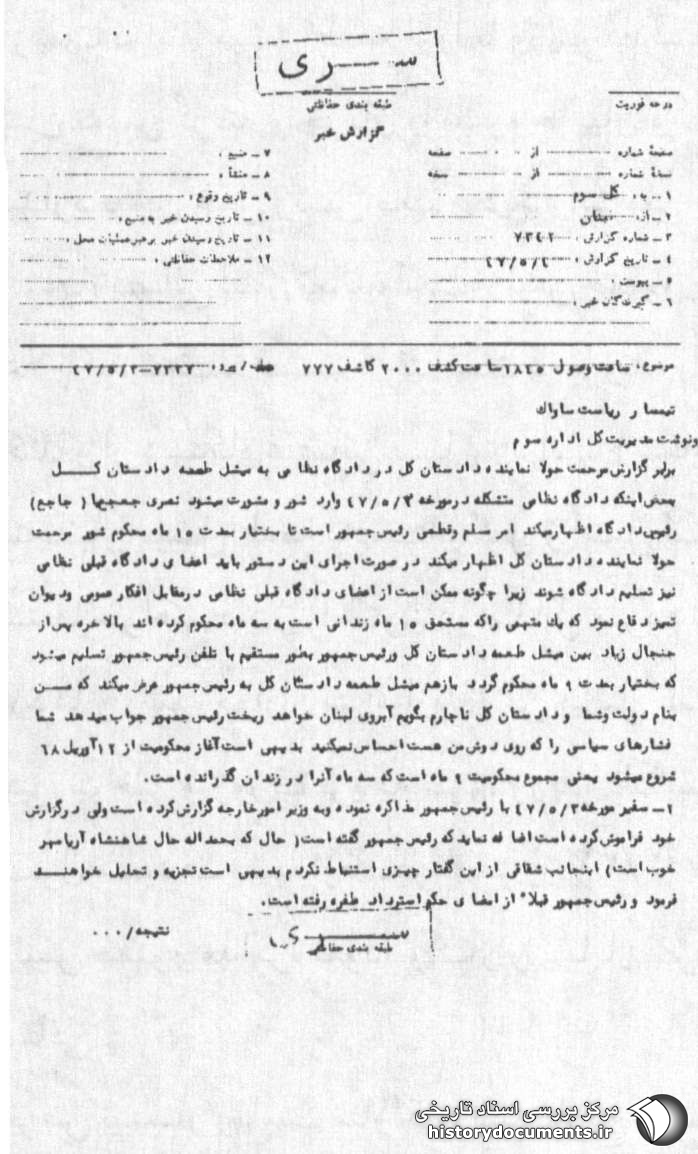 سری
طبقه بندی حفاظتی
درجه فوریت
گزارش خبر
صفحهٔ شماره از صفحه
نسخهٔ شماره از نسخه
۱ ـ به : کل سوم
۲ ـ از :
۳ ـ شماره گزارش : ۷۳۴۲
۴ ـ تاریخ گزارش : ۴۷/۵/۴
۵ ـ پیوست :
۶ ـ گیرندگان خبر :
۷ ـ منبع :
۸ ـ منشأ :
۹ ـ تاریخ وقوع :
۱۰ ـ تاریخ رسیدن خبر به منبع :
۱۱ ـ تاریخ رسیدن خبر برهبر عملیات محل :
۱۲ ـ ملاحظات حفاظتی :
موضوع : ساعت وصول ۱۸۴۵ ساعت کشف ۲۰۰۰ کاشف ۷۷۷
تیمسار ریاست ساواک
رونوشت مدیریت کل اداره سوم
برابر گزارش مرحمت حولا نماینده دادستان کل در دادگاه نظامی به میشل طعمه دادستان کــل
بمحض اینکه دادگاه نظامی متشکله در مورخه ۴۷/۵/۳ وارد شور و مشورت میشود نصری جمجیها ( جاجع)
رئیس دادگاه اظهار میکند امر مسلم و قطعی رئیس جمهور است تا بختیار بمدت ۱۵ ماه محکوم شود مرحمت
حولا نماینده دادستان کل اظهار میکند در صورت اجرای این دستور باید اعضای دادگاه قبلی نظامی
نیز تسلیم دادگاه شوند زیرا چگونه ممکن است از اعضای دادگاه قبلی نظامی در مقابل افکار عمومی و دیوان
تمیز دفاع نمود که یک متهمی را که مستحق ۱۵ ماه زندانی است به سه ماه محکوم کرده اند بالاخره پس از
جنجال زیاد بین میشل طعمه دادستان کل و رئیس جمهور بطور مستقیم با تلفن رئیس جمهور تسلیم میشود
که بختیار بمدت ۹ ماه محکوم گردد باز هم میشل طعمه دادستان کل به رئیس جمهور عرض میکند که مــن
بنام دولت و شما و دادستان کل ناچارم بگویم آبروی لبنان خواهد ریخت رئیس جمهور جواب میدهد شما
فشارهای سیاسی را که روی دوش من هست احساس نمیکنید بدیهی است آغاز محکومیت از ۱۲ آوریل ۶۸
شروع میشود یعنی مجموع محکومیت ۹ ماه است که سه ماه آنرا در زندان گذرانده است.
۲ـ سفیر مورخه ۴۷/۵/۳ با رئیس جمهور مذاکره نموده و به وزیر امور خارجه گزارش کرده است ولی در گزارش
خود فراموش کرده است اضافه نماید که رئیس جمهور گفته است ( حال که بحمداله حال شاهنشاه آریامهر
خوب است) اینجانب شفاقی از این گفتار چیزی استنباط نکردم بدیهی است تجزیه و تحلیل خواهنــد
فرمود و رئیس جمهور قبلاً از امضای حکم استرداد طفره رفته است.
نتیجه / ۰۰۰
سری
طبقه بندی حفاظتی
مرکز بررسی اسناد تاریخی
historydocuments.ir